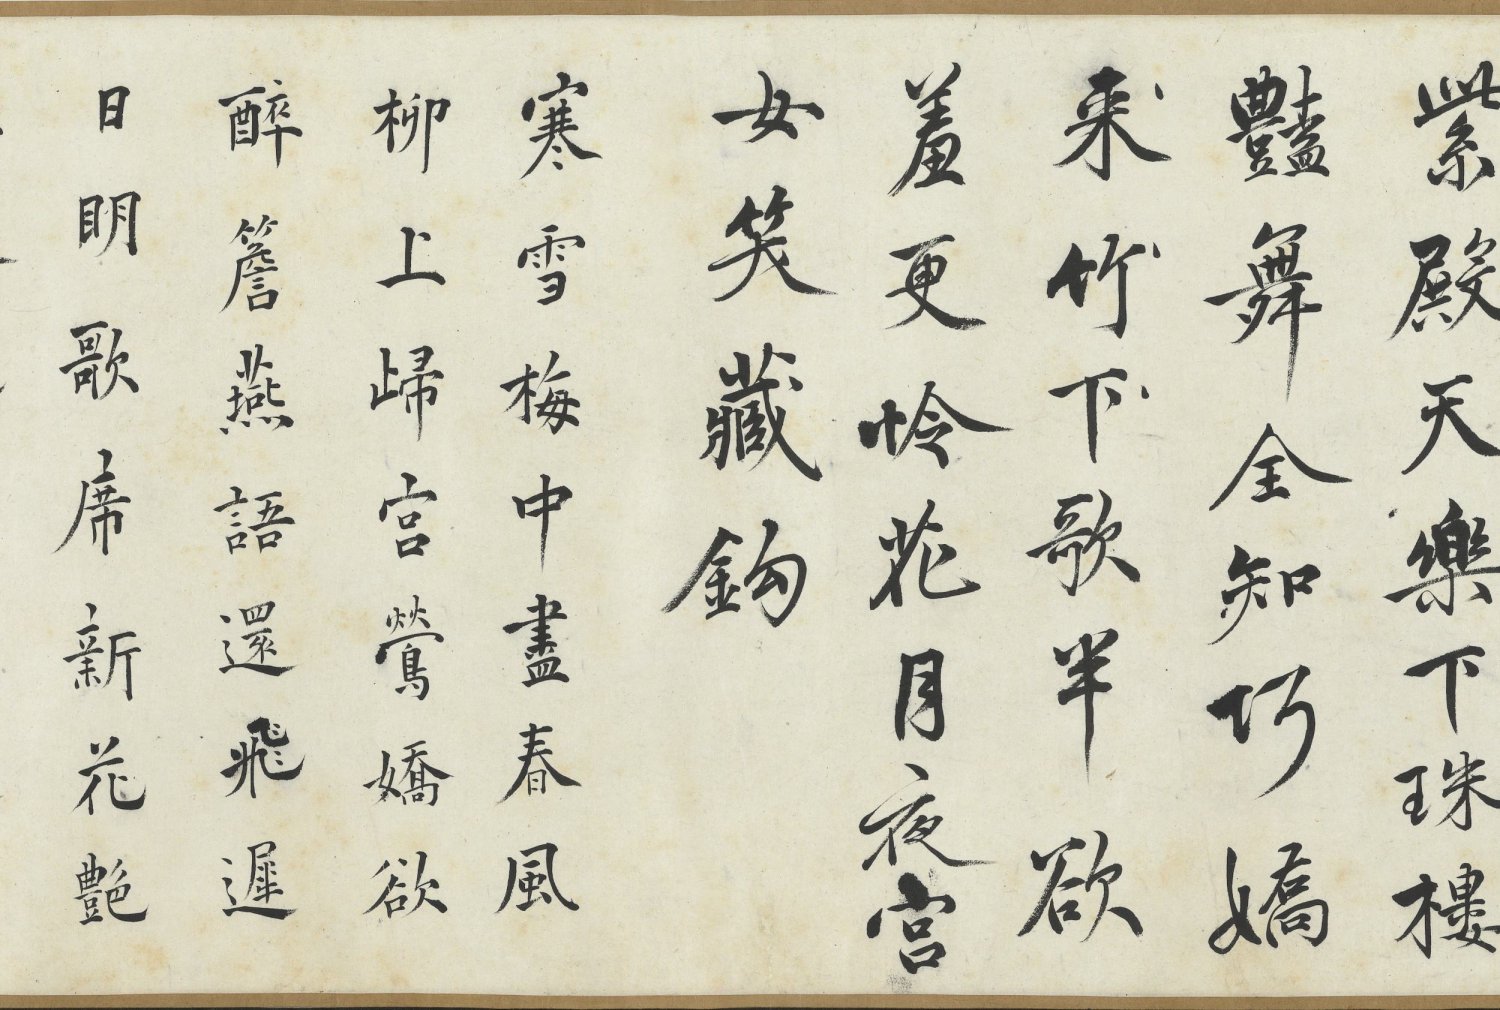 紫殿天樂下珠樓
豔舞全知巧嬌
來竹下歌半欲
羞更怜花月夜宮
女笑藏鈎
寒雪梅中盡春風
柳上歸宮鶯嬌欲
醉簷燕語還飛遲
日明歌席新花艶